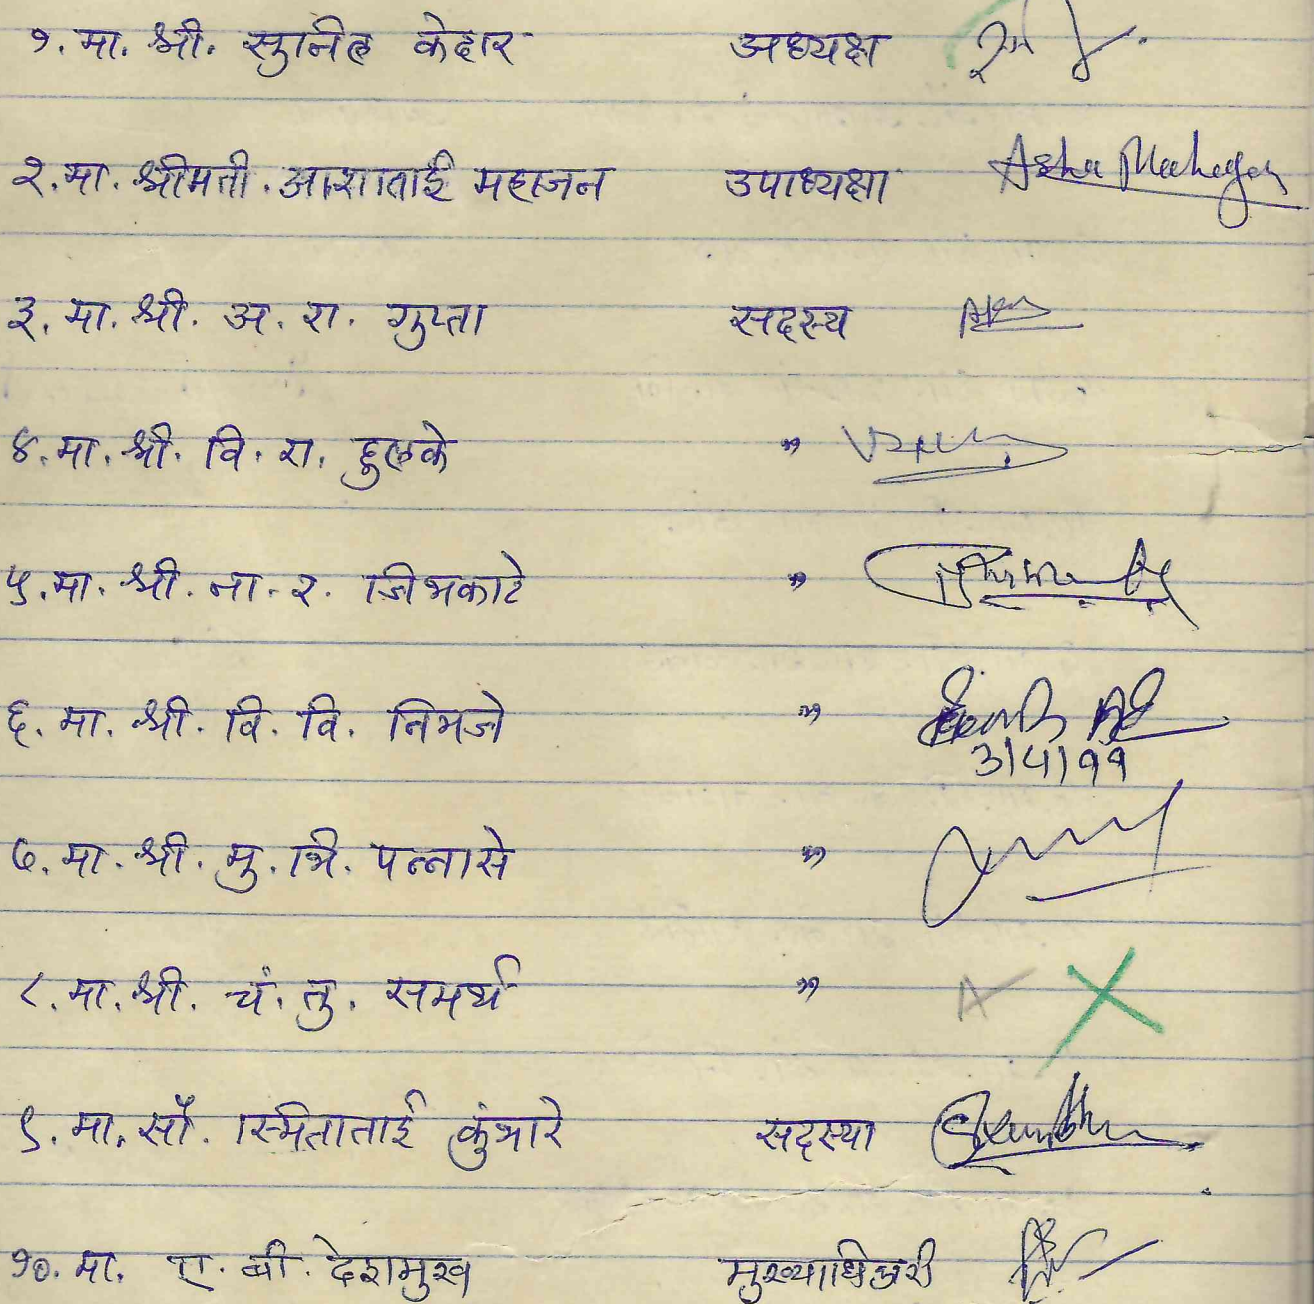 १. मा. श्री. सुनिल केदार अध्यक्ष
२. मा. श्रीमती. आशाताई महाजन उपाध्यक्षा Asha Mahajan
३. मा. श्री. अ. रा. गुप्ता सदस्य
४. मा. श्री. वि. रा. हुलके "
५. मा. श्री. ना. र. जिभकाटे "
६. मा. श्री. वि. वि. निमजे "
3/4/99
७. मा. श्री. मु. त्रि. पन्नासे "
८. मा. श्री. चं. तु. समर्थ " A
९. मा. सौ. स्मिताताई कुंभारे सदस्या
१०. मा. ए. बी. देशमुख मुख्याधिकारी